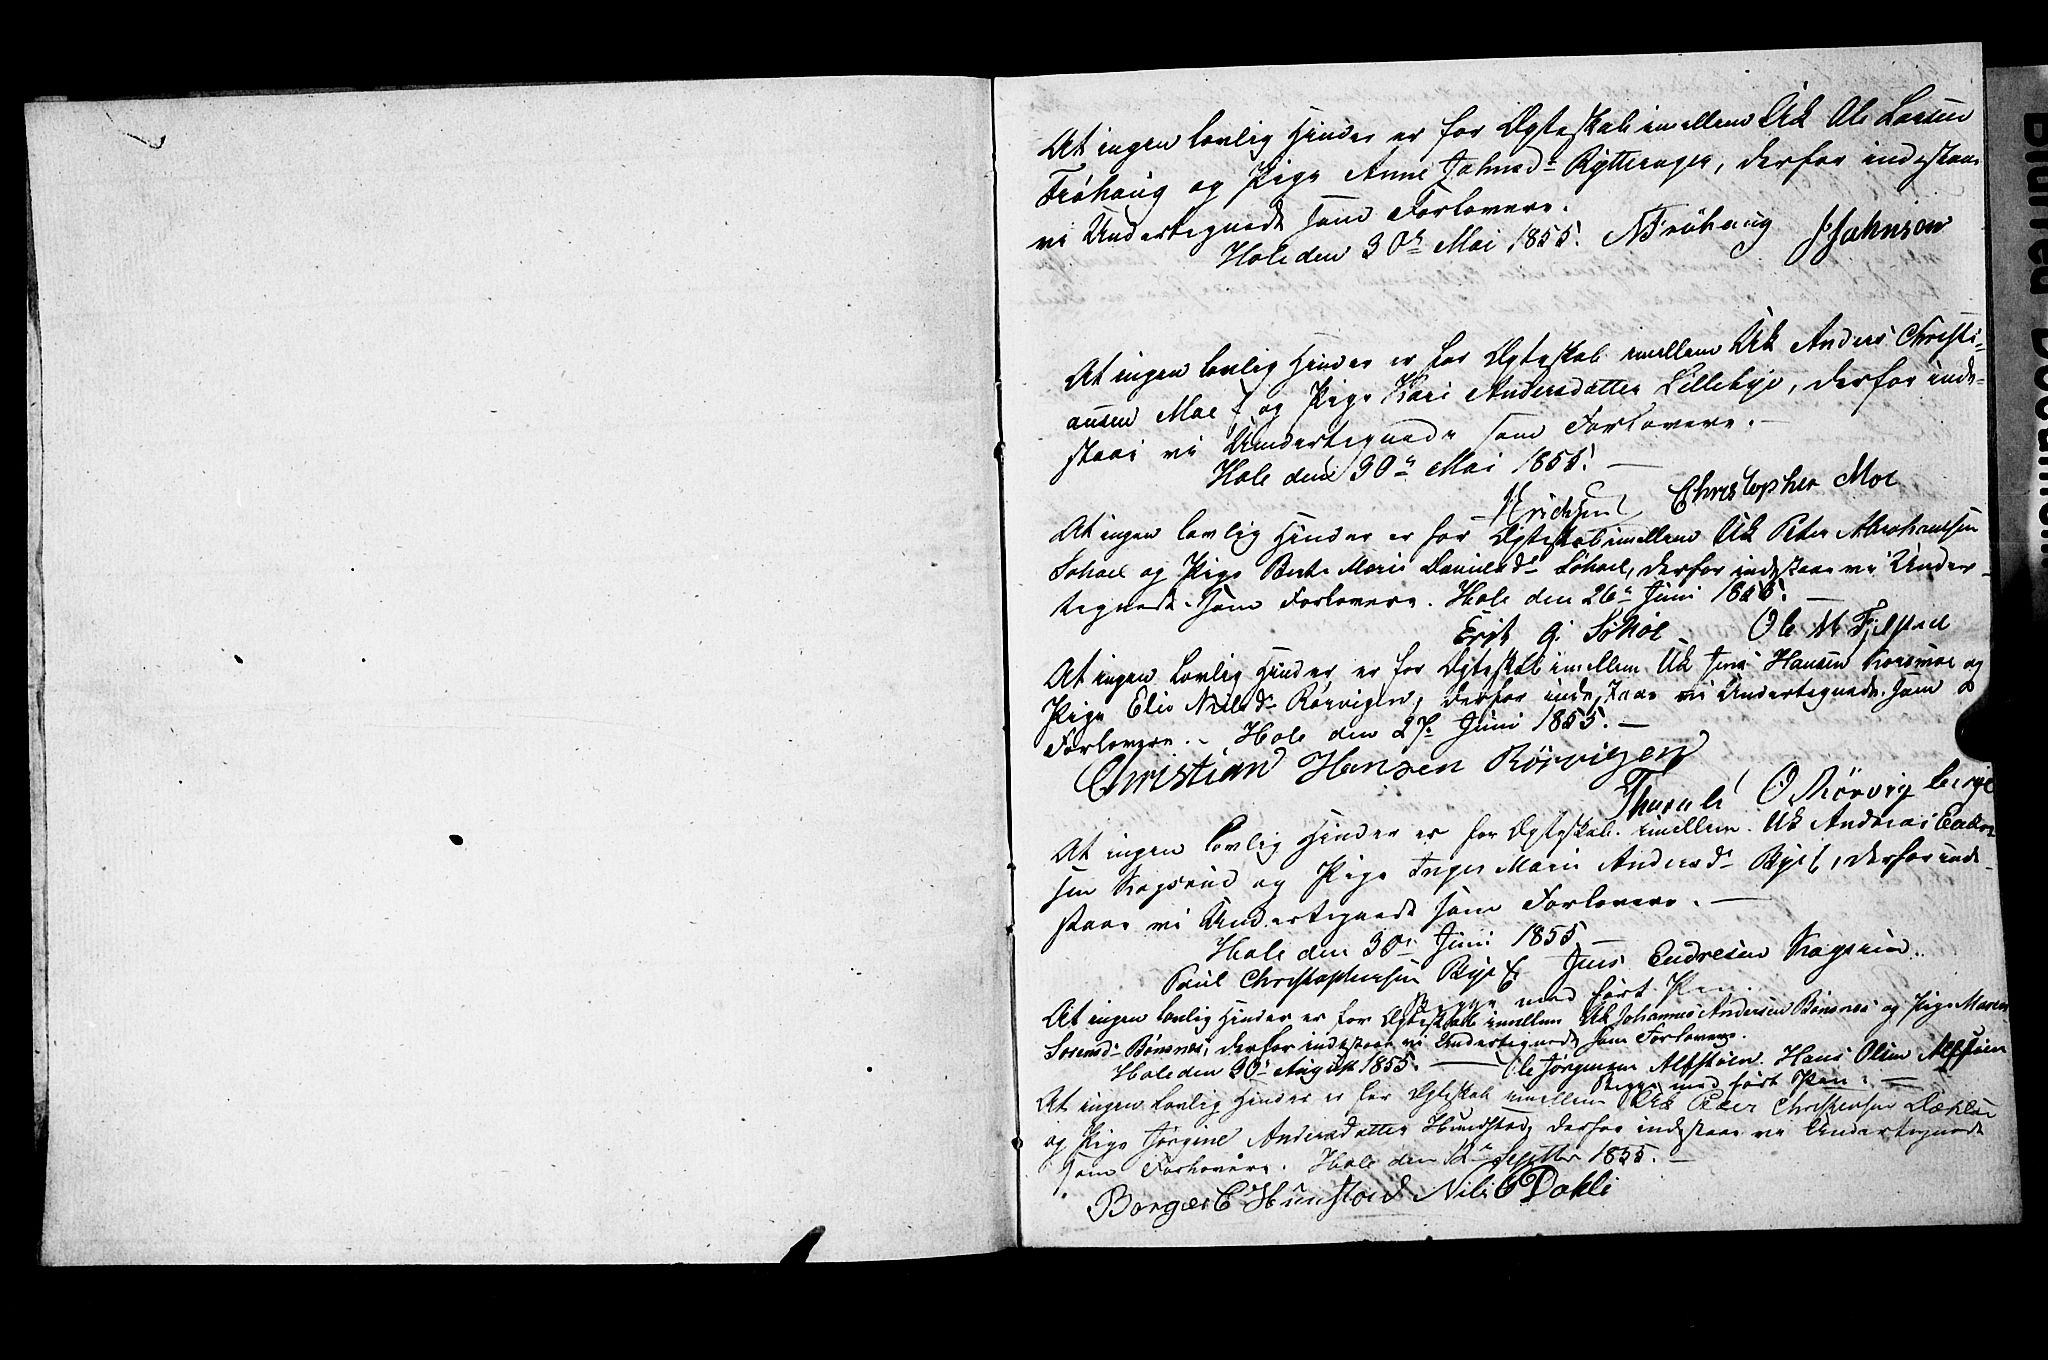 At ingen lovlig Hinder er for Ægteskab imellem Uk Ole Larsen
Frøhaug og Pige Anne Johnsd- Rytterager, derfor indestaae
vi Undertegnede som Forlovere.
Hole den 30te Mai 1855. NFrøhaug JJohnson
At ingen lovlig Hinder er for Ægteskab imellem Uk Anders Christi-
ansen Moe og Pige Kari Andersdatter Lillebye, derfor inde-
staae vi Undertegnede som Forlovere. -
Hole den 30te Mai 1855. -
Christopher Moe
At ingen lovlig Hinder er for Ægteskab imellem Uk Peter Abrahamsen
Søhoel og Pige Berte Marie Danielsd- Søhoel, derfor indestaae vi Under-
tegnede som Forlovere. Hole den 26te Juni 1855. -
Erik G. Søhoe Ole M Fjelstad
At ingen lovlig Hinder er for Ægteskab imellem Uk Jens Hansen Korsmoe og
Pige Elie Nilsd- Rørvigen, derfor indestaae vi Undertegnede som
Forlovere. - Hole den 27- Juni 1855. -
Christian Hansen Rørvigen
O Rørvig berge
At ingen lovlig Hinder er for Ægteskab imellem Uk Andreas Endre-
sen Kagsrud og Pige Inger Marie Andersd- Bye, derfor inde-
staae vi Undertegnede som Forlovere. -
Hole den 30te Juni 1855 -
Paul Christophersen Bye Jens Endresen Kagsrud.
Begge med ført Pen.
At ingen lovlig Hinder er for Ægteskab imellem Uk Johannes Andersen Bønsnes og Pige Maren
Sørensd- Bønsnes, derfor indestaae vi Undertegnede som Forlovere.
Hole den 30- August 1855. - Ole Jørgensen Alfstøen. Hans Olsen Alfstøen
Begge med ført Pen. -
At ingen lovlig Hinder er for Ægteskab imellem Uk Peder Christensen Dæhlie
og Pige Jørgine Andersdatter Hundstad, derfor indestaae vi Undertegnede
som Forlovere. Hole den 12te Septbr 1855. -
Borger C Hunstad Nils Dahli